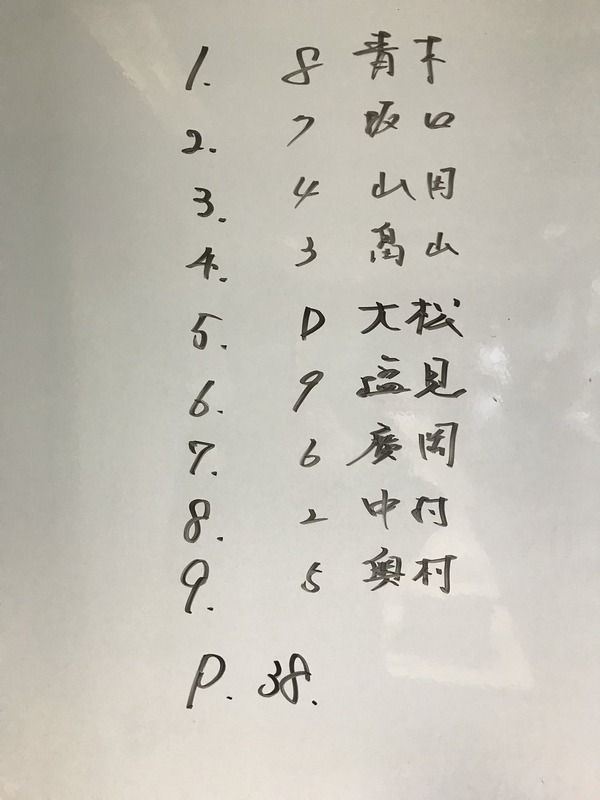 1. 8 青木
2. 7 坂口
3. 4 山田
4. 3 髙山
5. D 大松
6. 9 塩見
7. 6 廣岡
8. 2 中村
9. 5 奥村
P. 38.